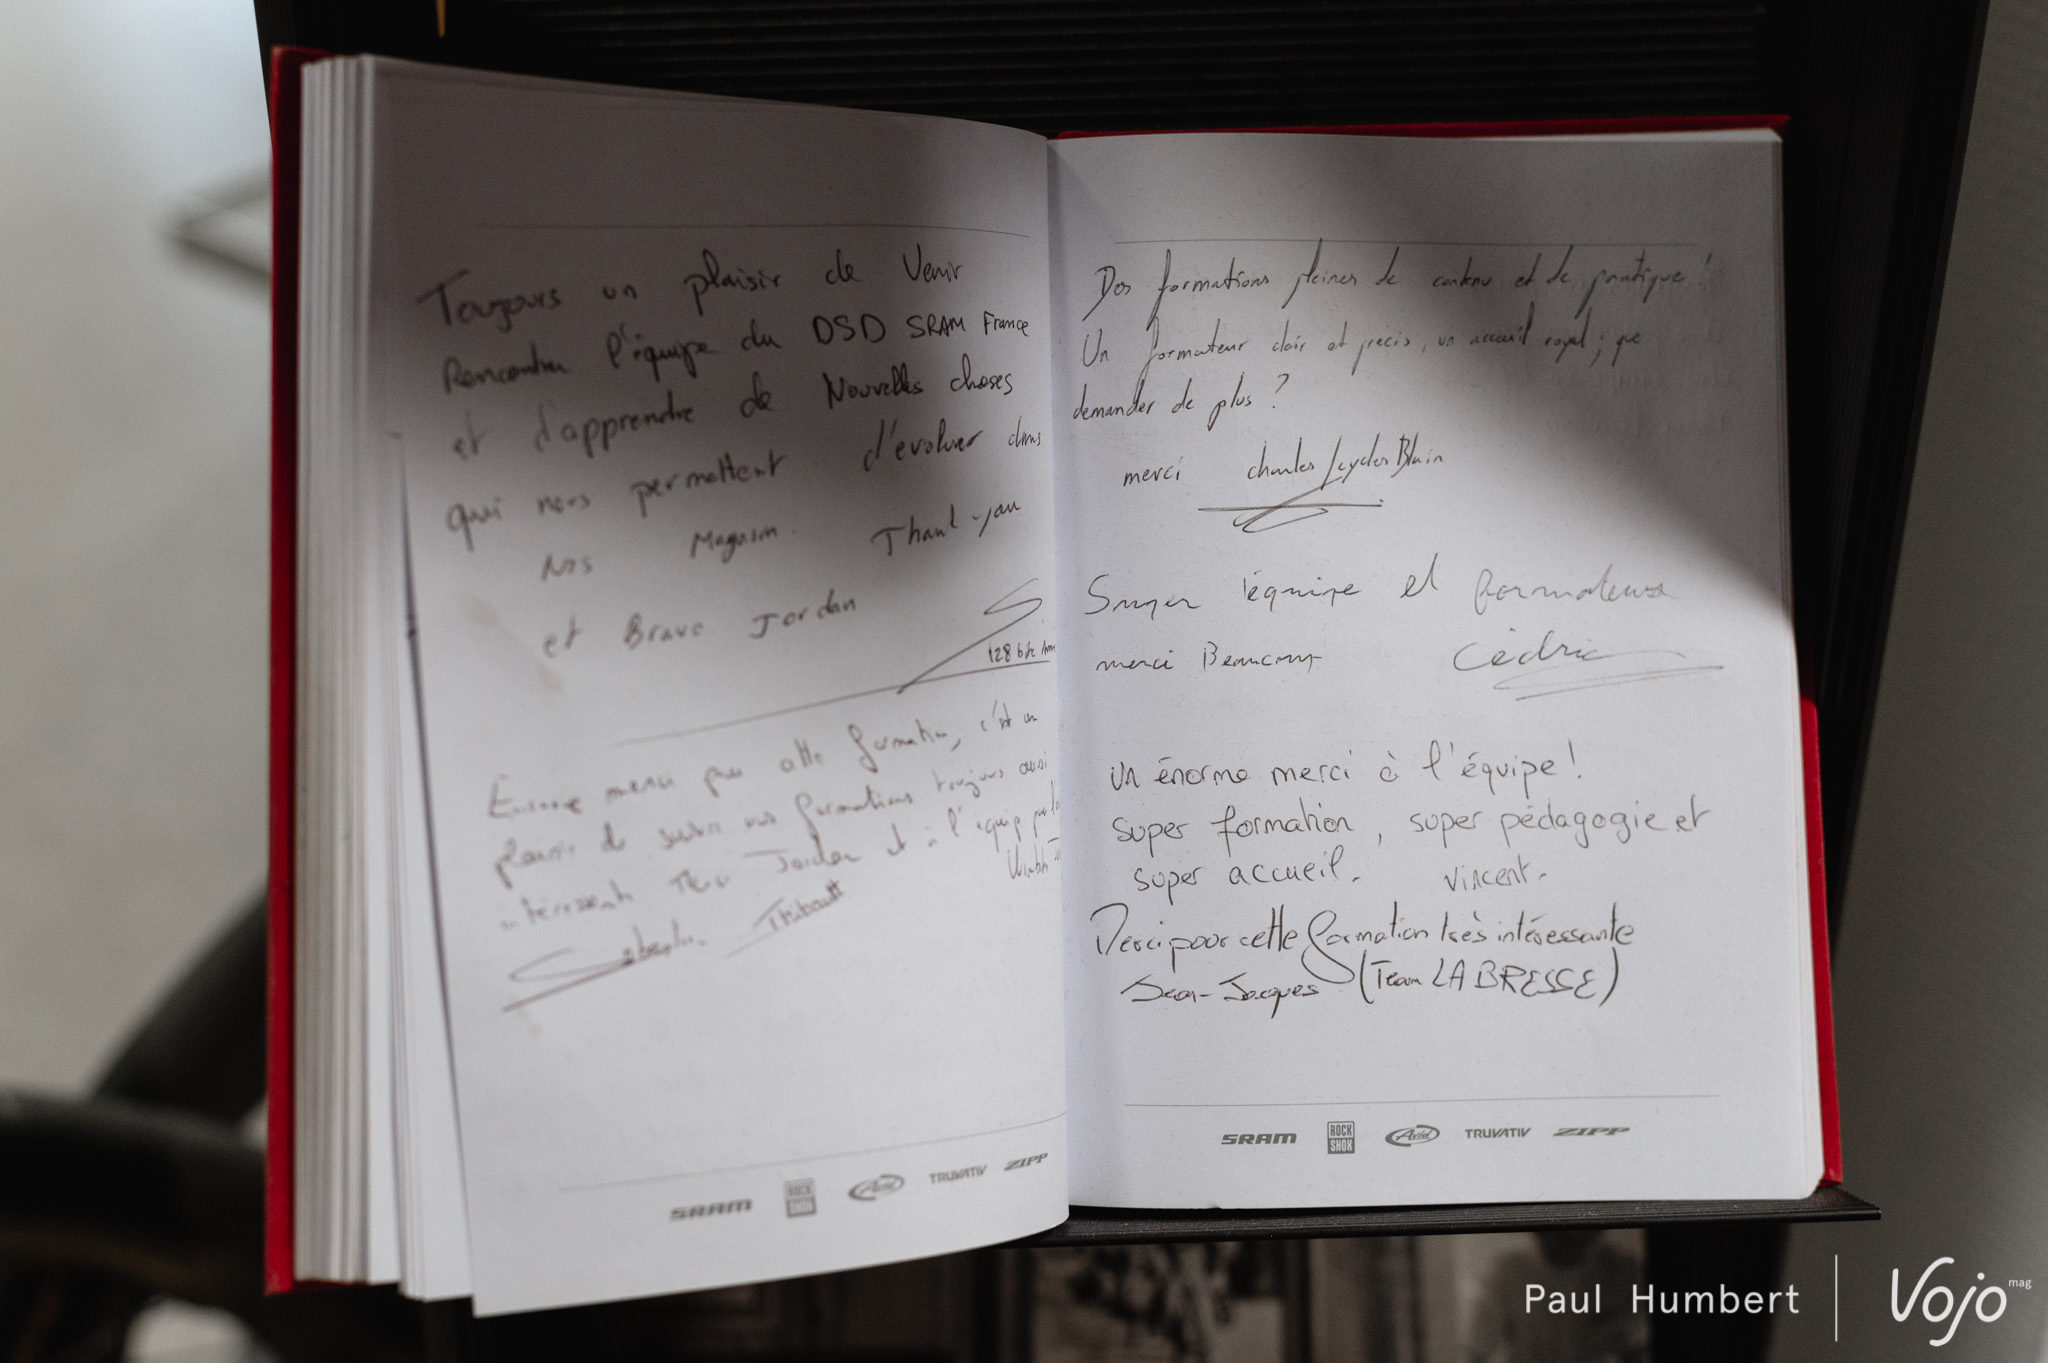 Toujours un plaisir de Venir
Rencontrer l'équipe du DSD SRAM France
et d'apprendre de Nouvelles choses
qui nous permettent d'évoluer dans
Nos Magasin. Thank-you
et Bravo Jordan
128 bike
Encore merci pour cette formation, c'est un
plaisir de suivre vos formations toujours aussi
intéressante Merci Jordan et à l'équipe
Thibault
Des formations pleines de contenu et de pratique!
Un formateur clair et précis, un accueil royal; que
demander de plus?
merci charles Cycles Blain
Super l'équipe et formateurs
merci Beaucoup Cédric
un énorme merci à l'équipe!
super formation, super pédagogie et
super accueil. vincent.
Merci pour cette formation très intéressante
Jean-Jacques (Team LA BRESSE)
SRAM ROCK SHOX Avid TRUVATIV ZIPP
SRAM ROCK SHOX Avid TRUVATIV ZIPP
Paul Humbert Vojo mag